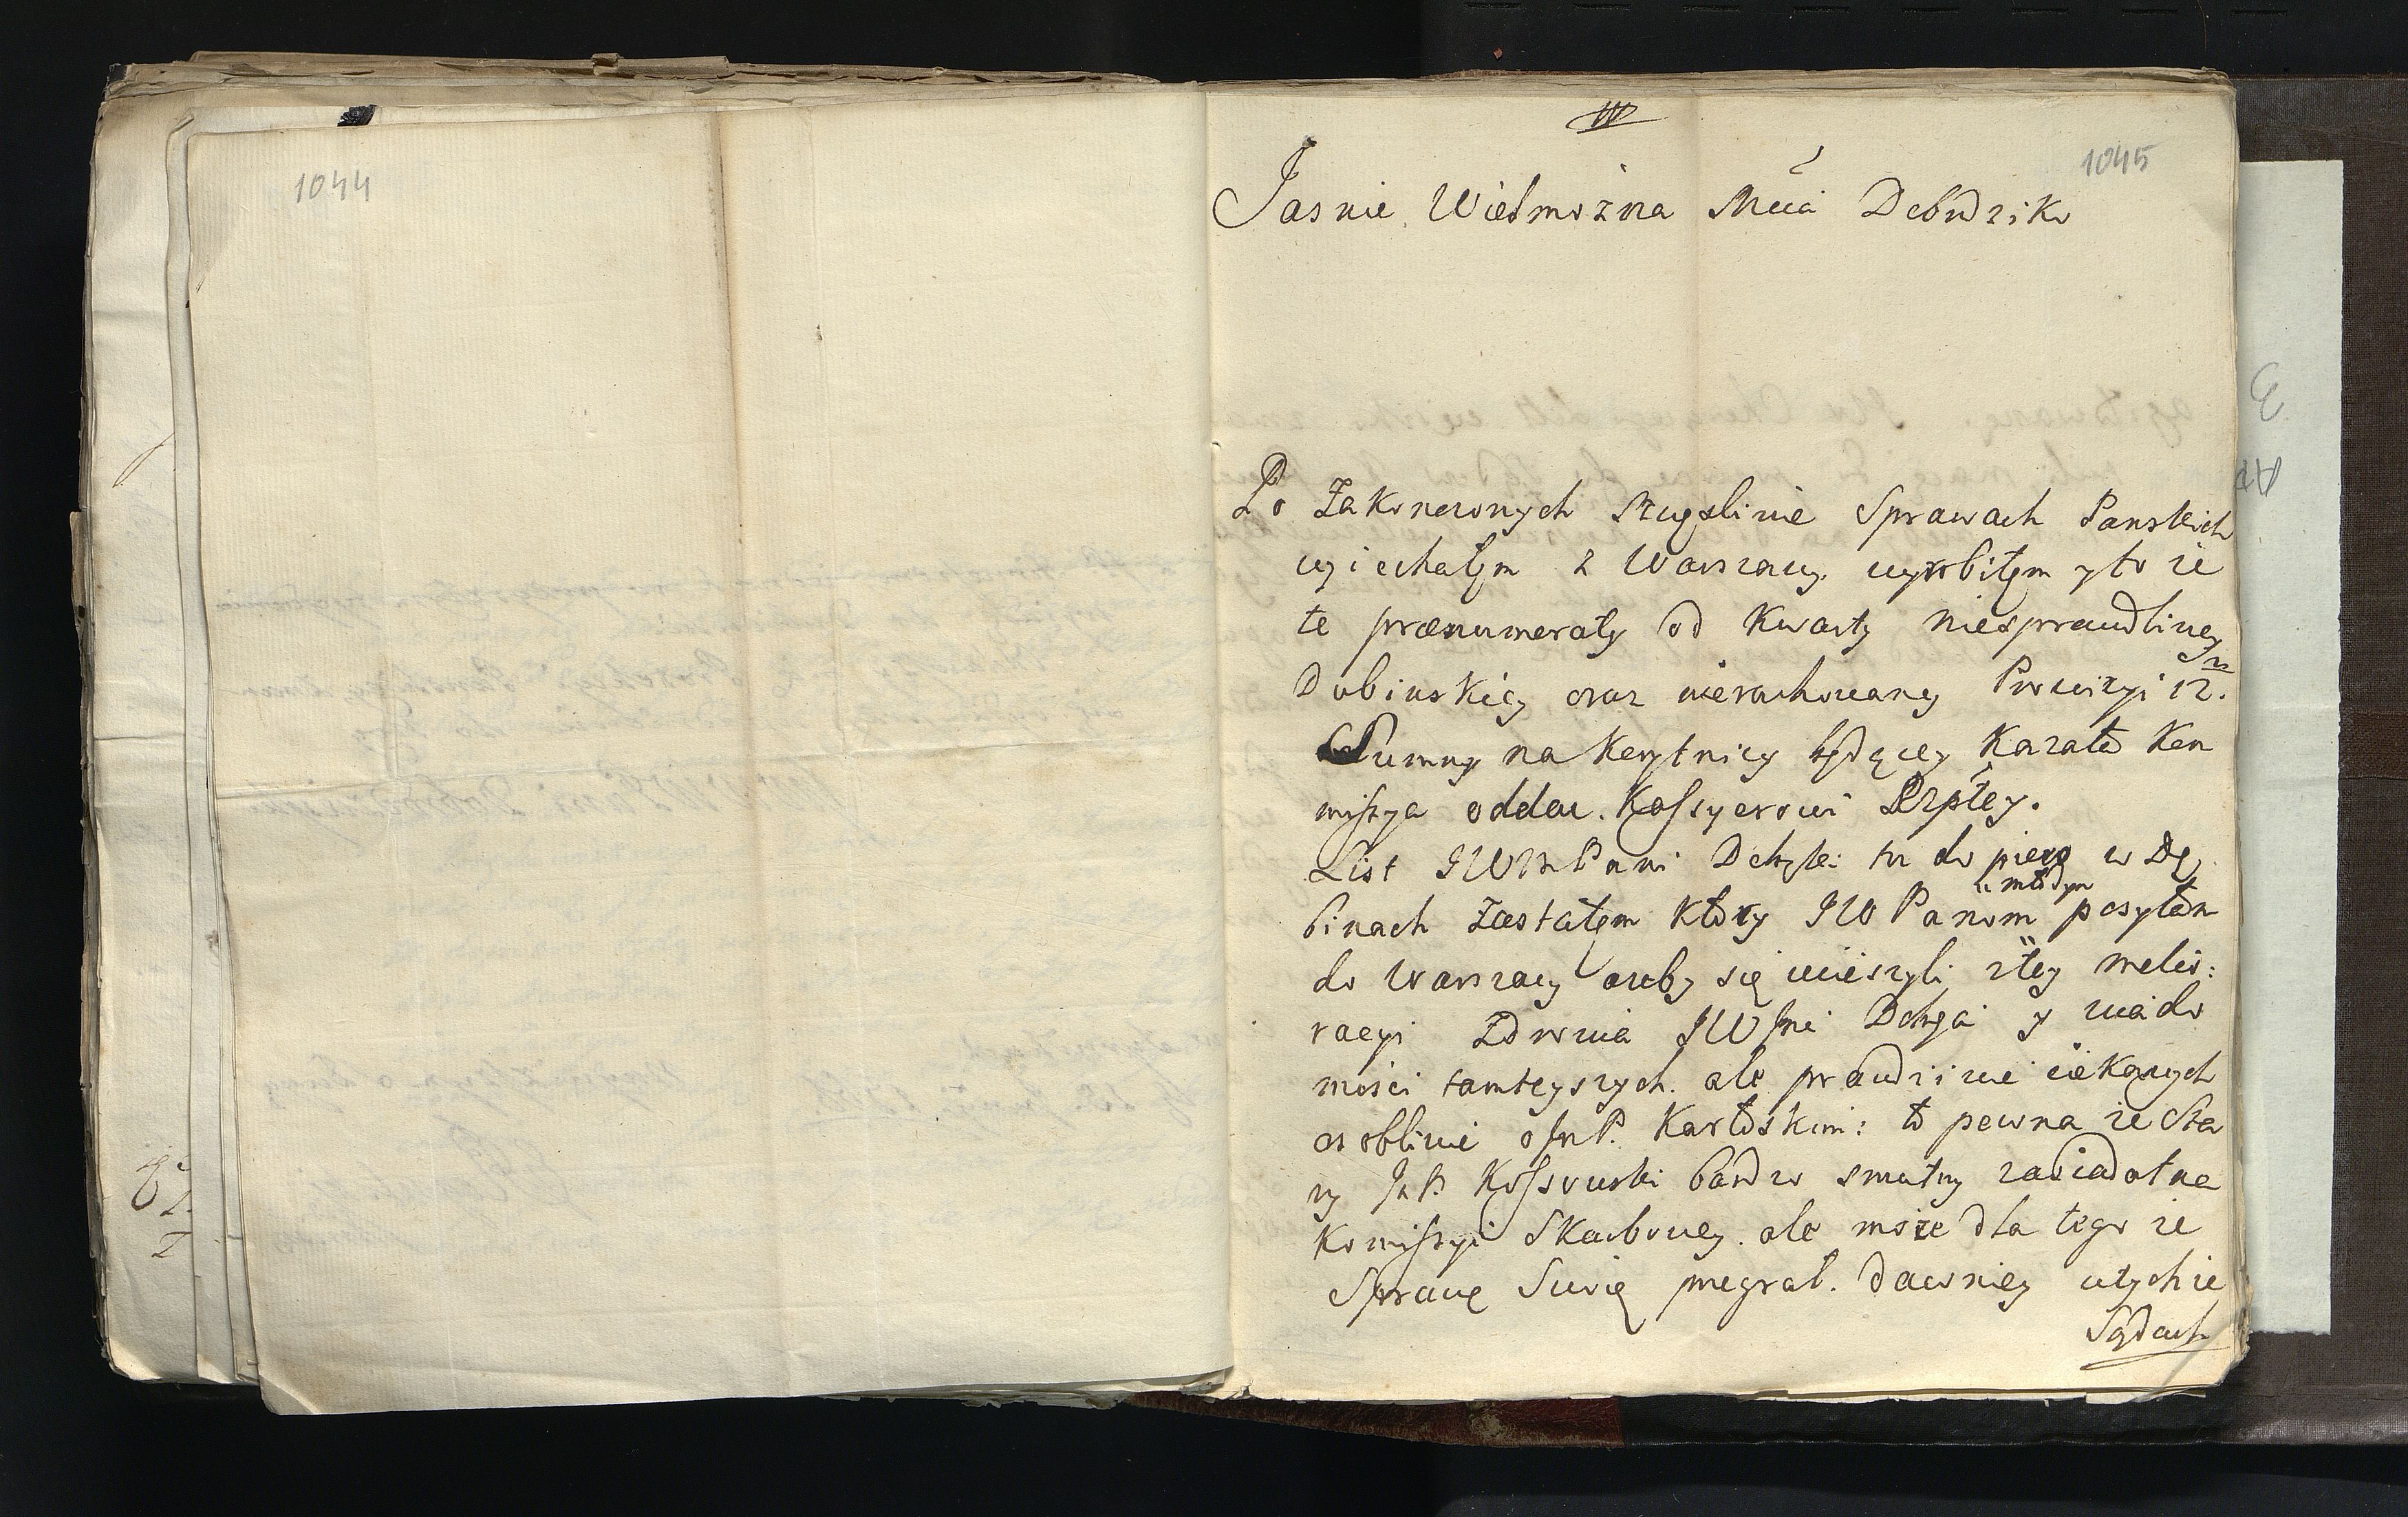 1044
1045
Jasnie Wielmożna Mcia Dobrdziko
Po Zakonczonych szczęsliwie Sprawach Panskich
wyiechałęm z Warszawy. wyrobiłęm y to że
te prænumeraty od Kwarty niesprawdliwey
Dubinskiey oraz nierachowaney Prowizyi 12.
Summy na Korytnicy będącey Kazała Kom
missya oddać. Kassyerowi Rzptey.
List JWMPani Dobrki tu do piero w Dę
binach Zastałęm Który JW Panom
młodym
posyłam
do Warszawy ażeby się uciešzyli, z tey melio:
racyi Zdrowia JWJmci y wiado
mości tamteyszych. ale prawdziwie ciekawych
osobliwie o JmP. Karłoskim: to pewna że Sta
ry JmP. Kossowski bardzo smutny zasiadał na
Kommissyi Skarbowey. ale może dla tego że
Sprawę Swoię przegrał. dawniey w tychże
Sądach